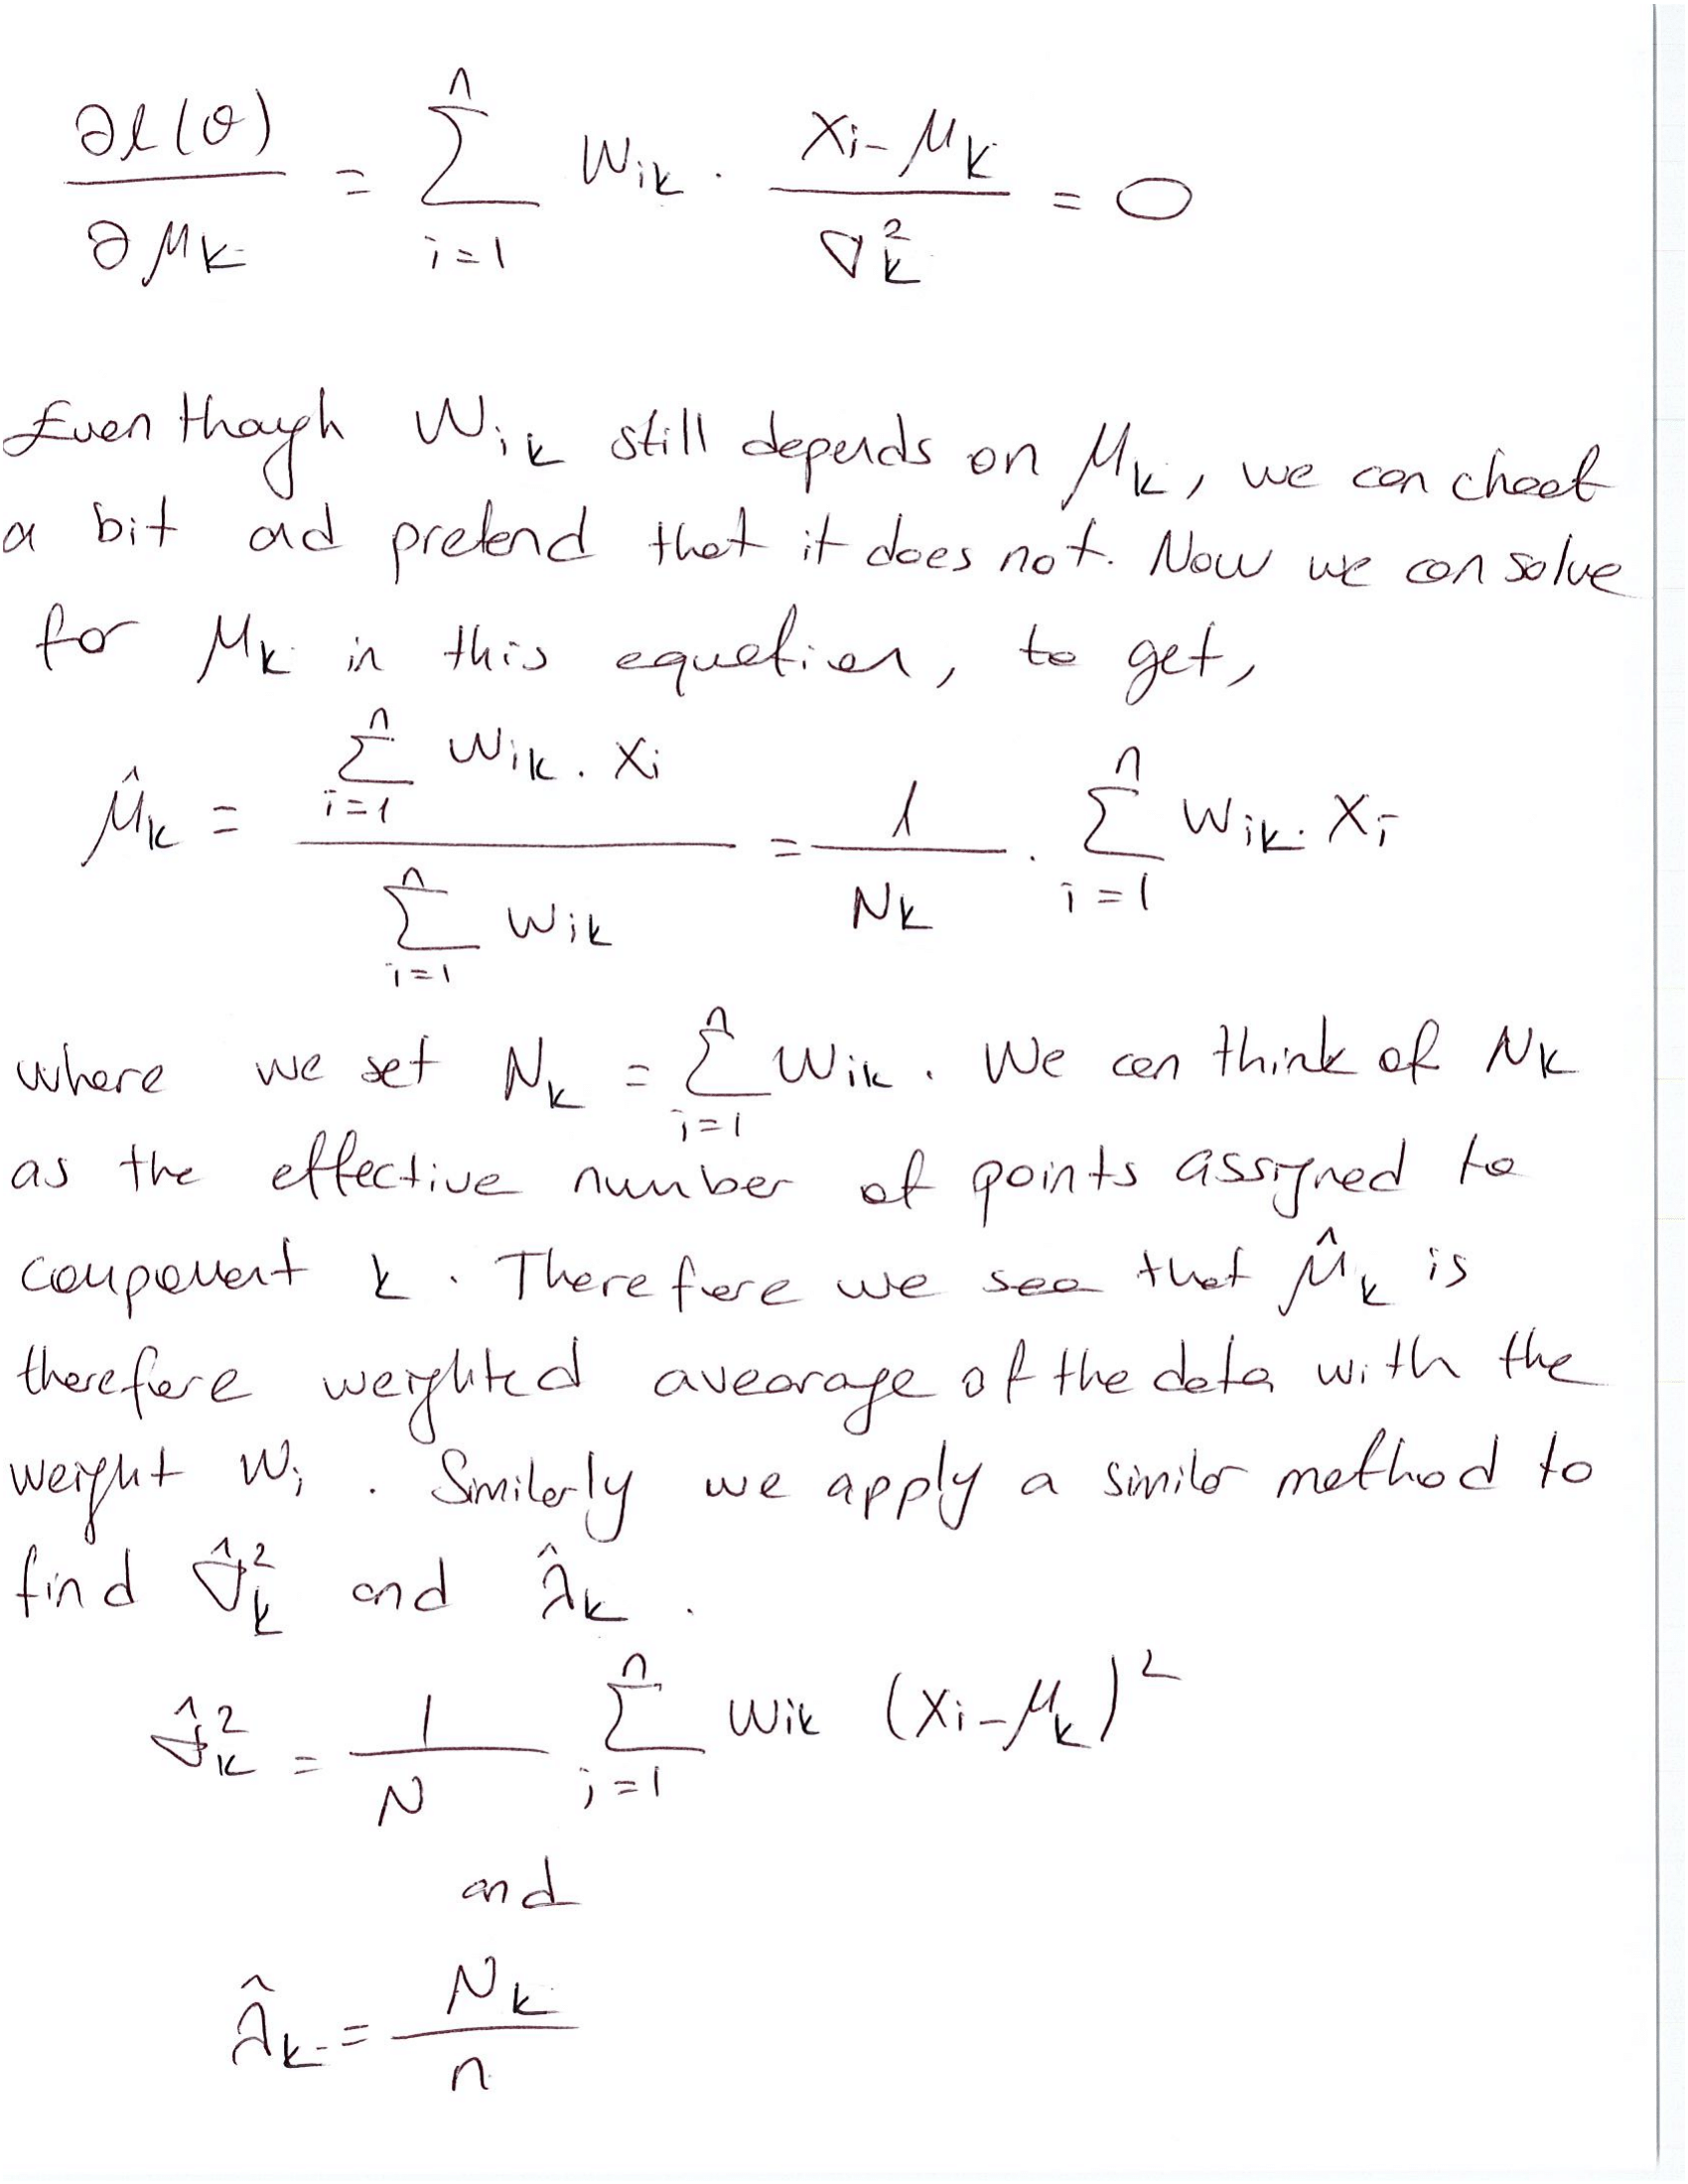 ∂ℓ(θ)/∂μk = Σ_{i=1}^{n} Wik · (Xi - μk)/σk² = 0
Even though Wik still depends on μk, we can cheat
a bit ad pretend that it does not. Now we can solve
for μk in this equation, to get,
μ̂k = (Σ_{i=1}^{n} Wik · Xi)/(Σ_{i=1}^{n} Wik) = 1/Nk · Σ_{i=1}^{n} Wik · Xi
where we set Nk = Σ_{i=1}^{n} Wik. We can think of Nk
as the effective number of points assigned to
component k. Therefore we see that μ̂k is
therefore weighted avearage of the data with the
weight Wi. Similarly we apply a similar method to
find σ̂k² and λ̂k.
σ̂k² = 1/N Σ_{i=1}^{n} Wik (Xi - μk)²
and
λ̂k = Nk/n